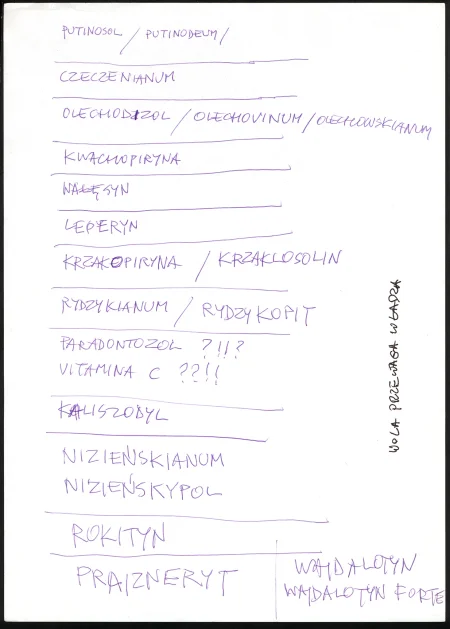 PUTINOSOL / PUTINODEUM /
CZECZENIANUM
OLECHODIZOL / OLECHOVINUM / OLECHOWSKIANUM
KWACHOPIRYNA
WAŁĘSYN
LEPERYN
KRZAKOPIRYNA / KRZAKLOSOLIN
RYDZYKIANUM / RYDZYKOPIT
PARADONTOZOL ?!!?
VITAMINA C ??!!
KALISZODYL
NIZIEŃSKIANUM
NIZIEŃSKYPOL
ROKITYN
PRAJZNERYT
WAJDALOTYN
WAJDALOTYN FORTE
WOLA PRZEWAGA WŁADZA